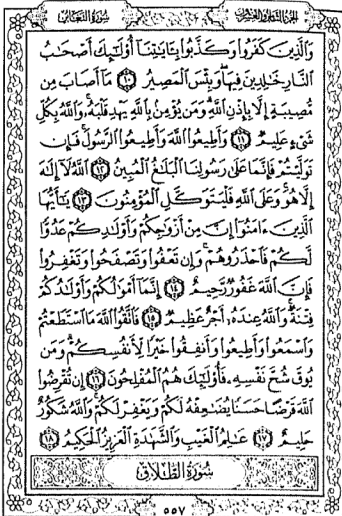 الجزء الثامن والعشرون سورة التغابن
وَالَّذِينَ كَفَرُوا وَكَذَّبُوا بِـَٔايَـٰتِنَآ أُو۟لَـٰٓئِكَ أَصْحَـٰبُ
النَّارِ خَـٰلِدِينَ فِيهَا ۖ وَبِئْسَ الْمَصِيرُ ١٠ مَآ أَصَابَ مِن
مُّصِيبَةٍ إِلَّا بِإِذْنِ اللَّهِ ۗ وَمَن يُؤْمِنۢ بِاللَّهِ يَهْدِ قَلْبَهُۥ ۚ وَاللَّهُ بِكُلِّ
شَىْءٍ عَلِيمٌ ١١ وَأَطِيعُوا اللَّهَ وَأَطِيعُوا الرَّسُولَ ۚ فَإِن
تَوَلَّيْتُمْ فَإِنَّمَا عَلَىٰ رَسُولِنَا الْبَلَـٰغُ الْمُبِينُ ١٢ اللَّهُ لَآ إِلَـٰهَ
إِلَّا هُوَ ۚ وَعَلَى اللَّهِ فَلْيَتَوَكَّلِ الْمُؤْمِنُونَ ١٣ يَـٰٓأَيُّهَا
الَّذِينَ ءَامَنُوٓا إِنَّ مِنْ أَزْوَٰجِكُمْ وَأَوْلَـٰدِكُمْ عَدُوًّا
لَّكُمْ فَاحْذَرُوهُمْ ۚ وَإِن تَعْفُوا وَتَصْفَحُوا وَتَغْفِرُوا
فَإِنَّ اللَّهَ غَفُورٌ رَّحِيمٌ ١٤ إِنَّمَآ أَمْوَٰلُكُمْ وَأَوْلَـٰدُكُمْ
فِتْنَةٌ ۚ وَاللَّهُ عِندَهُۥٓ أَجْرٌ عَظِيمٌ ١٥ فَاتَّقُوا اللَّهَ مَا اسْتَطَعْتُمْ
وَاسْمَعُوا وَأَطِيعُوا وَأَنفِقُوا خَيْرًا لِّأَنفُسِكُمْ ۗ وَمَن
يُوقَ شُحَّ نَفْسِهِۦ فَأُو۟لَـٰٓئِكَ هُمُ الْمُفْلِحُونَ ١٦ إِن تُقْرِضُوا
اللَّهَ قَرْضًا حَسَنًا يُضَـٰعِفْهُ لَكُمْ وَيَغْفِرْ لَكُمْ ۚ وَاللَّهُ شَكُورٌ
حَلِيمٌ ١٧ عَـٰلِمُ الْغَيْبِ وَالشَّهَـٰدَةِ الْعَزِيزُ الْحَكِيمُ ١٨
سُورَةُ الطَّلَاقِ
٥٥٧